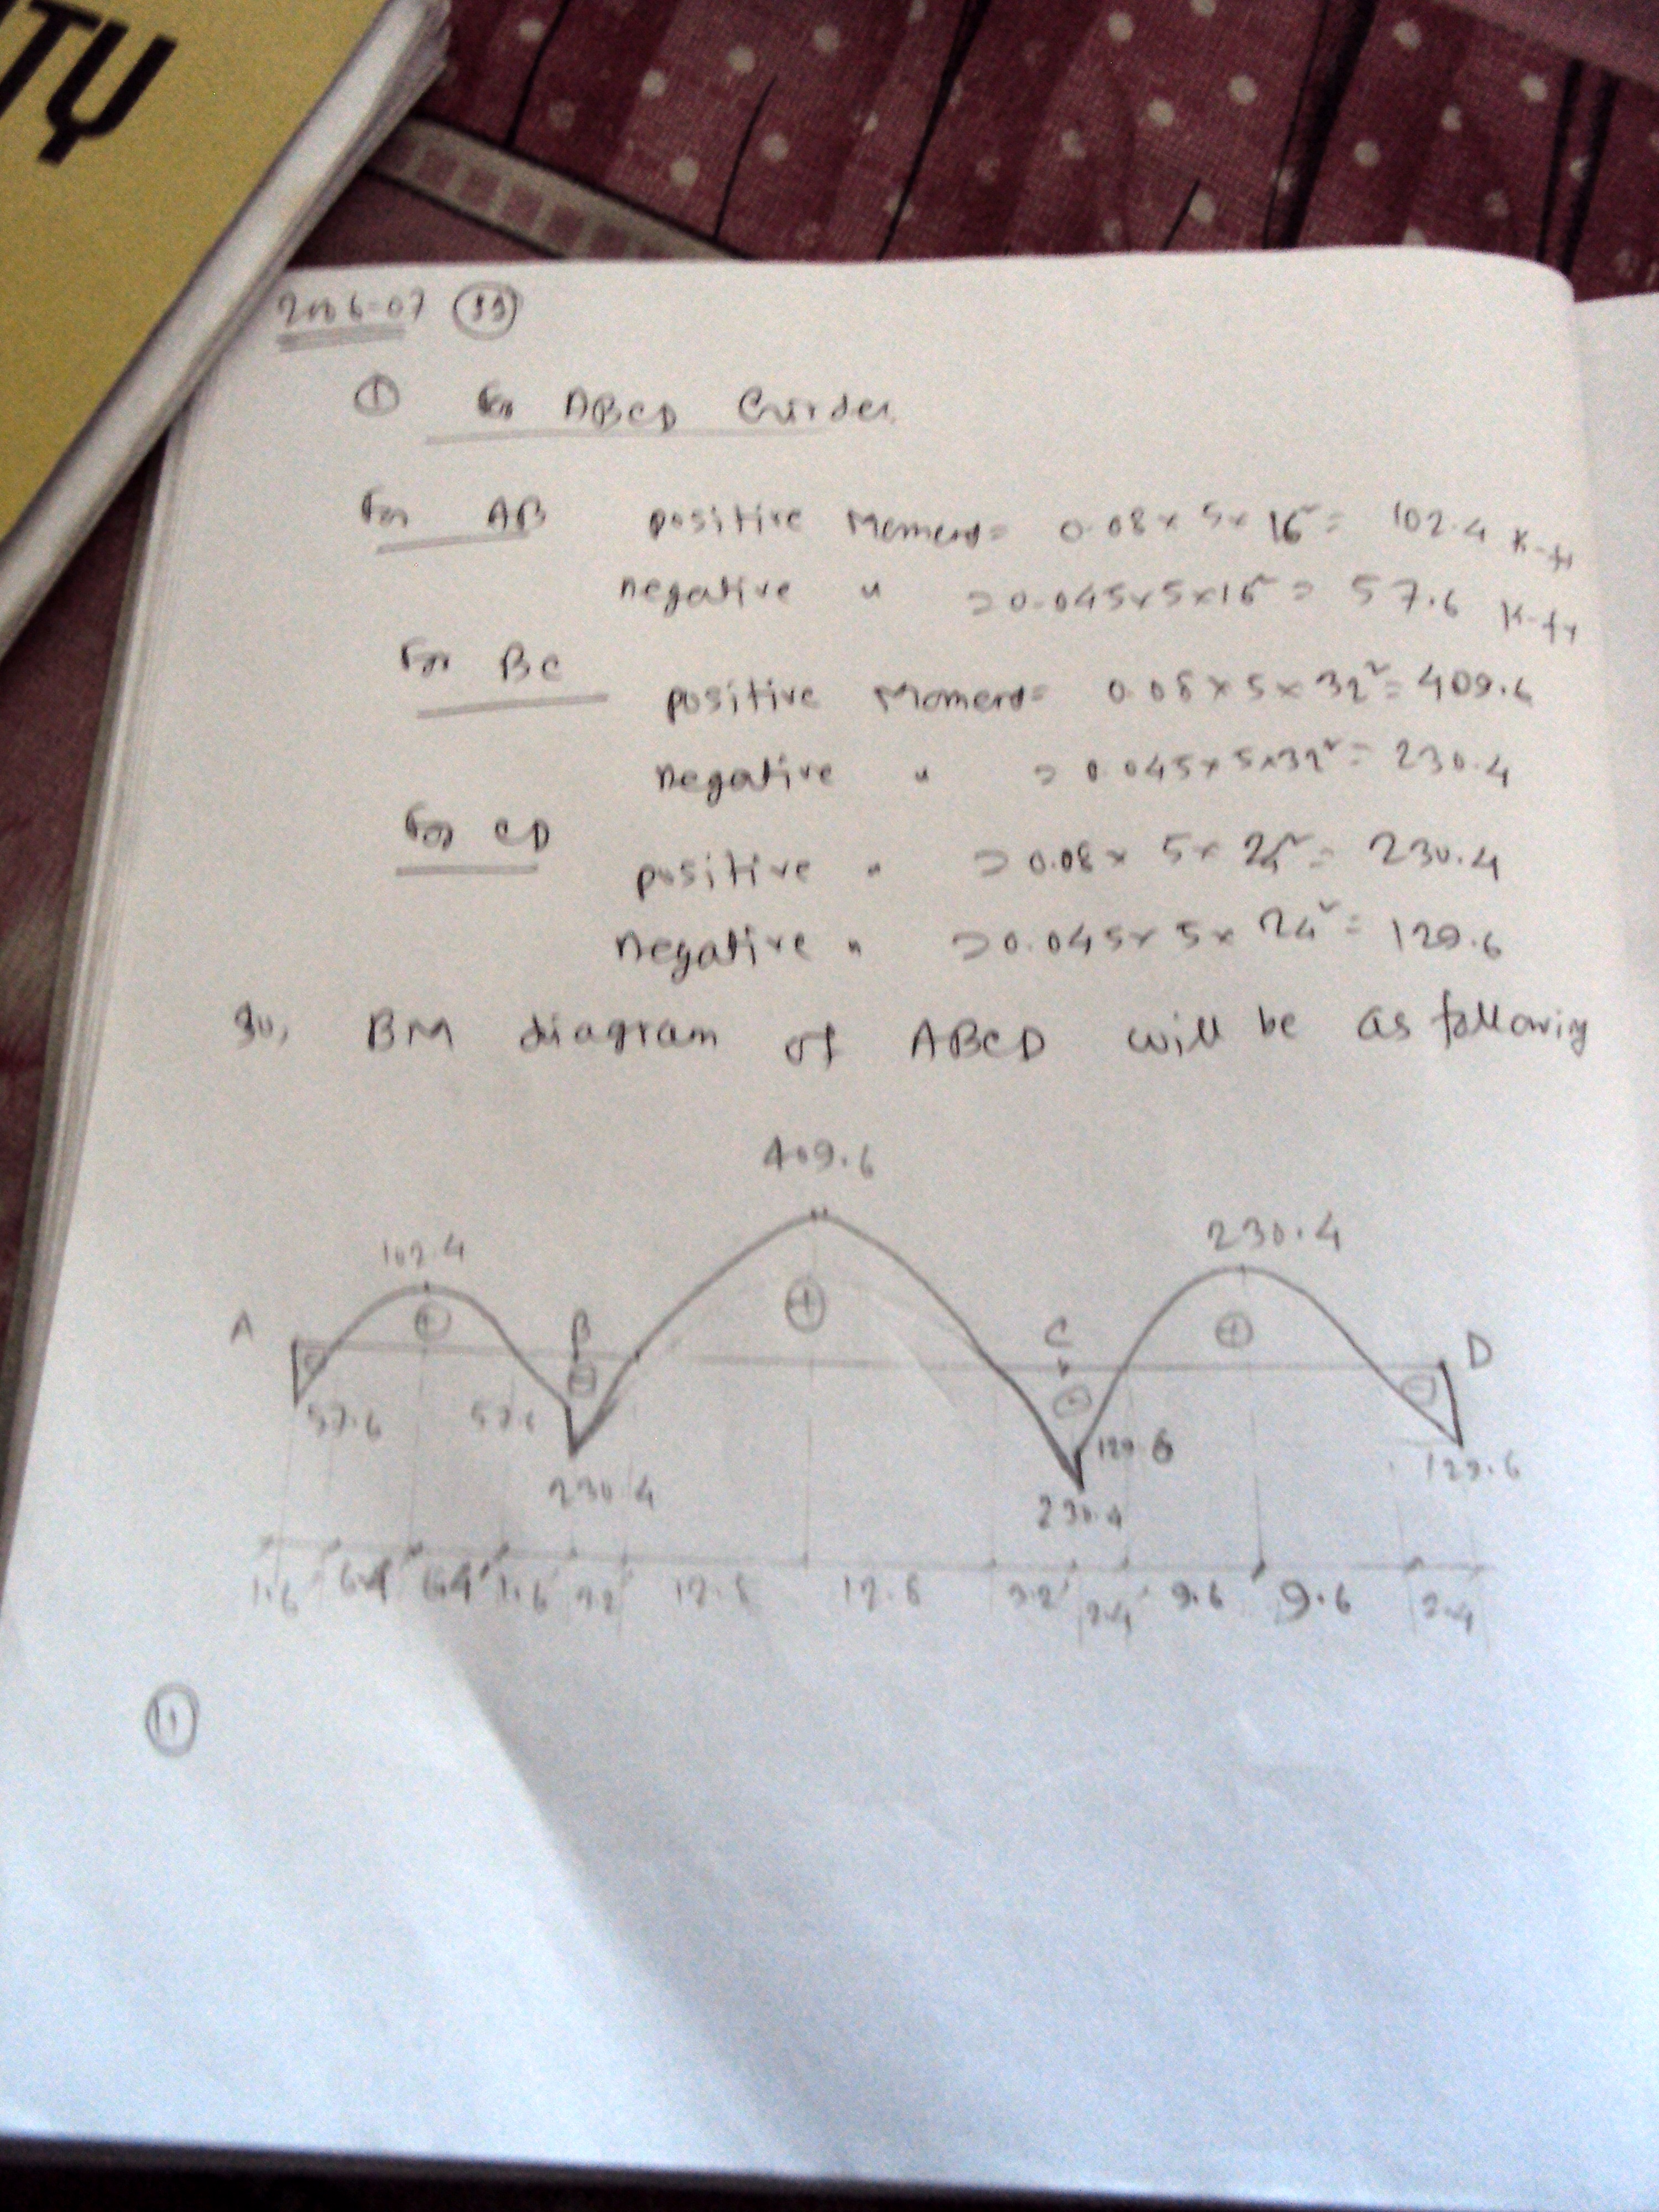 TY
2006-07 (11)
① For ABCD Girder
For AB positive Moment = 0.08 × 5 × 16² = 102.4 K-ft
negative " = 0.045×5×16² = 57.6 K-ft
For BC
positive Moment = 0.08 × 5 × 32² = 409.6
negative " = 0.045×5×32² = 230.4
For CD
positive " = 0.08 × 5 × 24² = 230.4
negative " = 0.045 × 5 × 24² = 129.6
So, BM diagram of ABCD will be as following
409.6
102.4 230.4
A + B + C + D
57.6 57.6 129.6 129.6
230.4 230.4
1.6 6.4 6.4 1.6 3.2 12.8 12.8 3.2 2.4 9.6 9.6 2.4
⑪